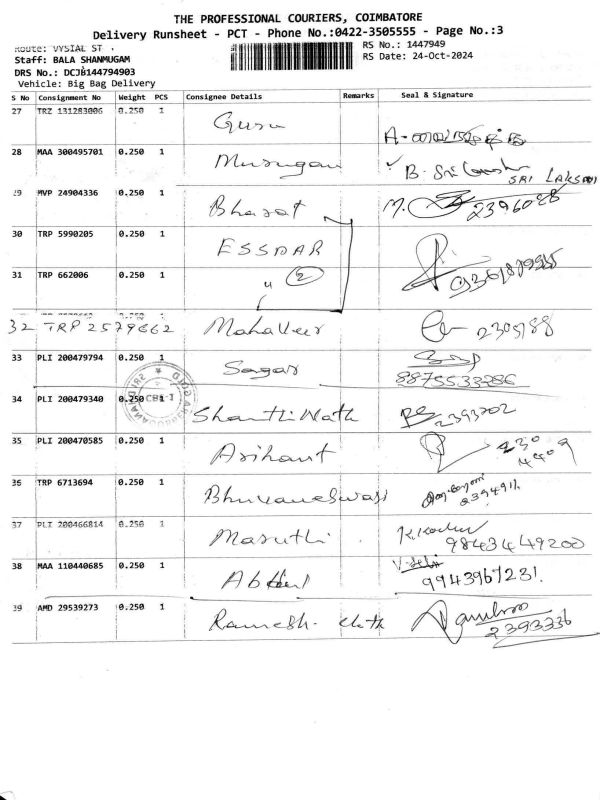 THE PROFESSIONAL COURIERS, COIMBATORE
Delivery Runsheet - PCT - Phone No.:0422-3505555 - Page No.:3
Route: VYSIAL ST .
RS No.: 1447949
Staff: BALA SHANMUGAM
RS Date: 24-Oct-2024
DRS No.: DCJB144794903
Vehicle: Big Bag Delivery
S No Consignment No Weight PCS Consignee Details Remarks Seal & Signature
27 TRZ 131283006 0.250 1 Guru
28 MAA 300495701 0.250 1 Murugan B. Sri SRI LAKSMI
29 MVP 24904336 0.250 1 Bharat M. 2396028
30 TRP 5990205 0.250 1 ESSDAR
31 TRP 662006 0.250 1 " 2
32 TRP 2579662 0.250 1 Mahaveer
33 PLI 200479794 0.250 1 Sagar 8875533286
34 PLI 200479340 0.250 1 Shanthi Nath 2393702
35 PLI 200470585 0.250 1 Arihant 230 4409
36 TRP 6713694 0.250 1 Bhuvaneswari
37 PLI 200466814 0.250 1 Maruthi . 98434 49200
38 MAA 110440685 0.250 1 9943967231.
39 AMD 29539273 0.250 1 Ramesh. cloth 2393336